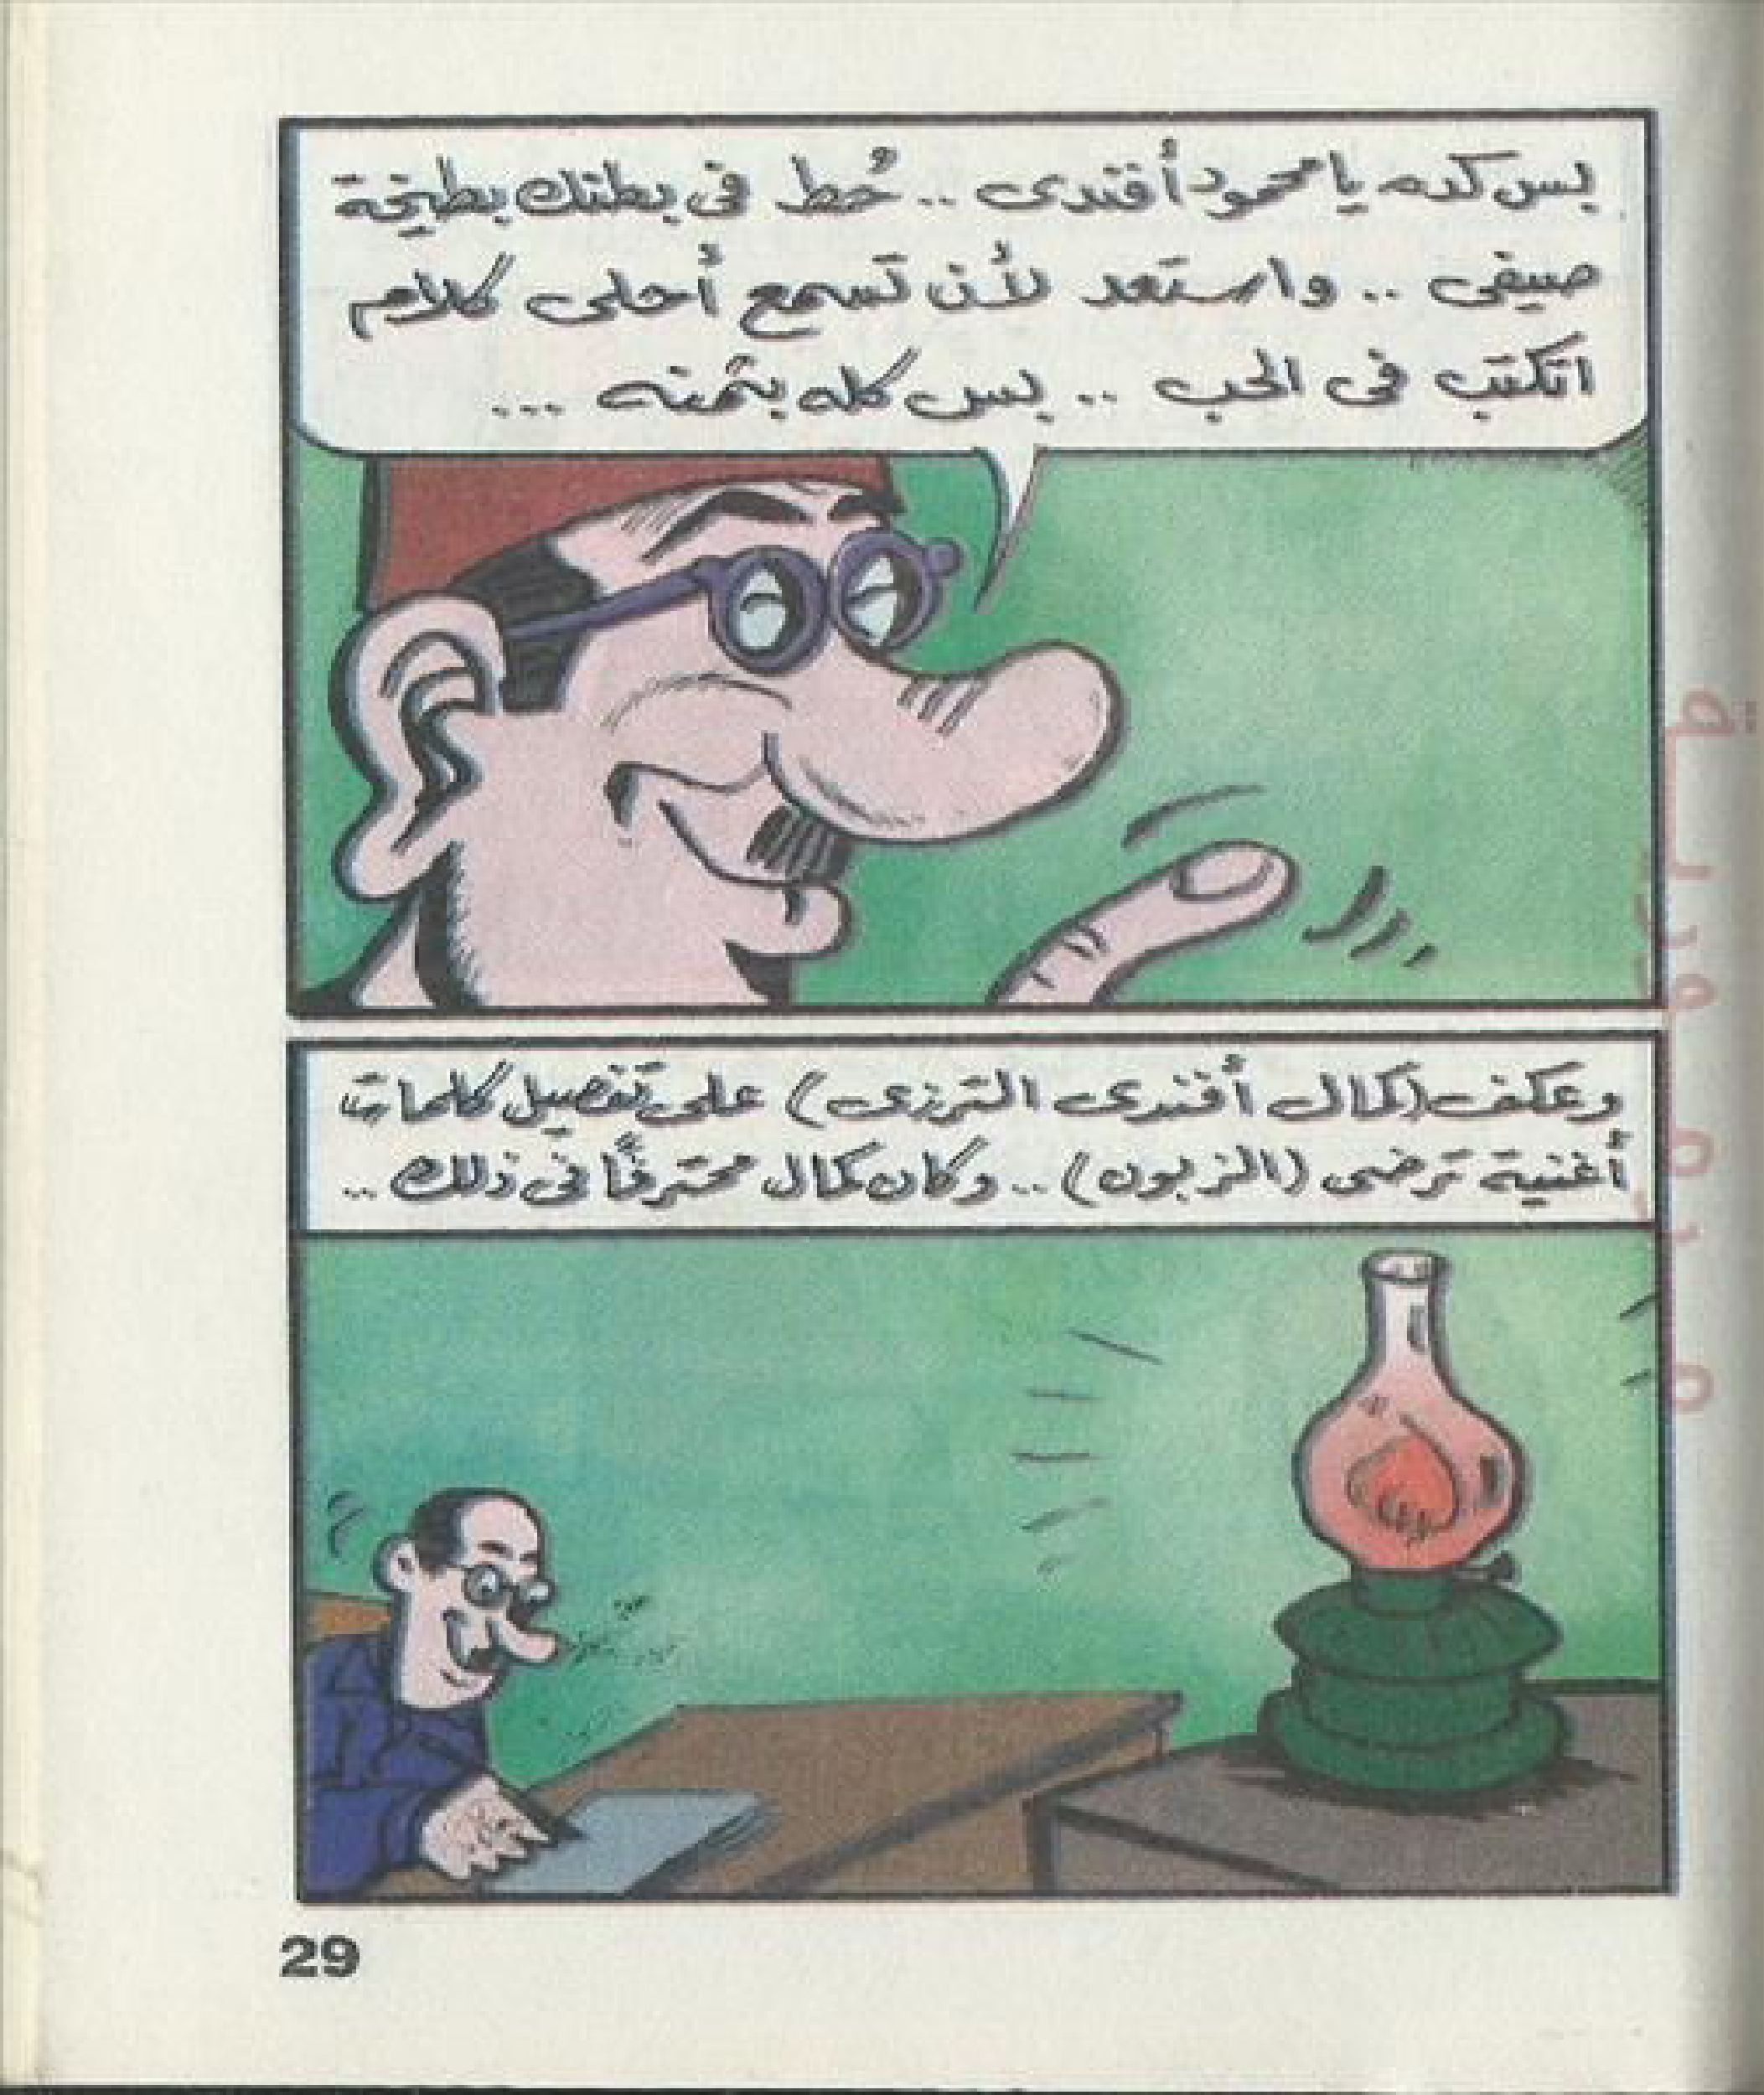 بس كده يا محمود أفندى .. حُط فى بطنك بطيخة
صيفى .. واستعد لأن تسمع أحلى كلام
اتكتب فى الحب .. بس كله بتمنه ...
وعكف (كمال أفندى الترزى) على تفصيل كلمات
أغنية ترضى (الزبون) .. وكان كمال محترفًا فى ذلك ..
29